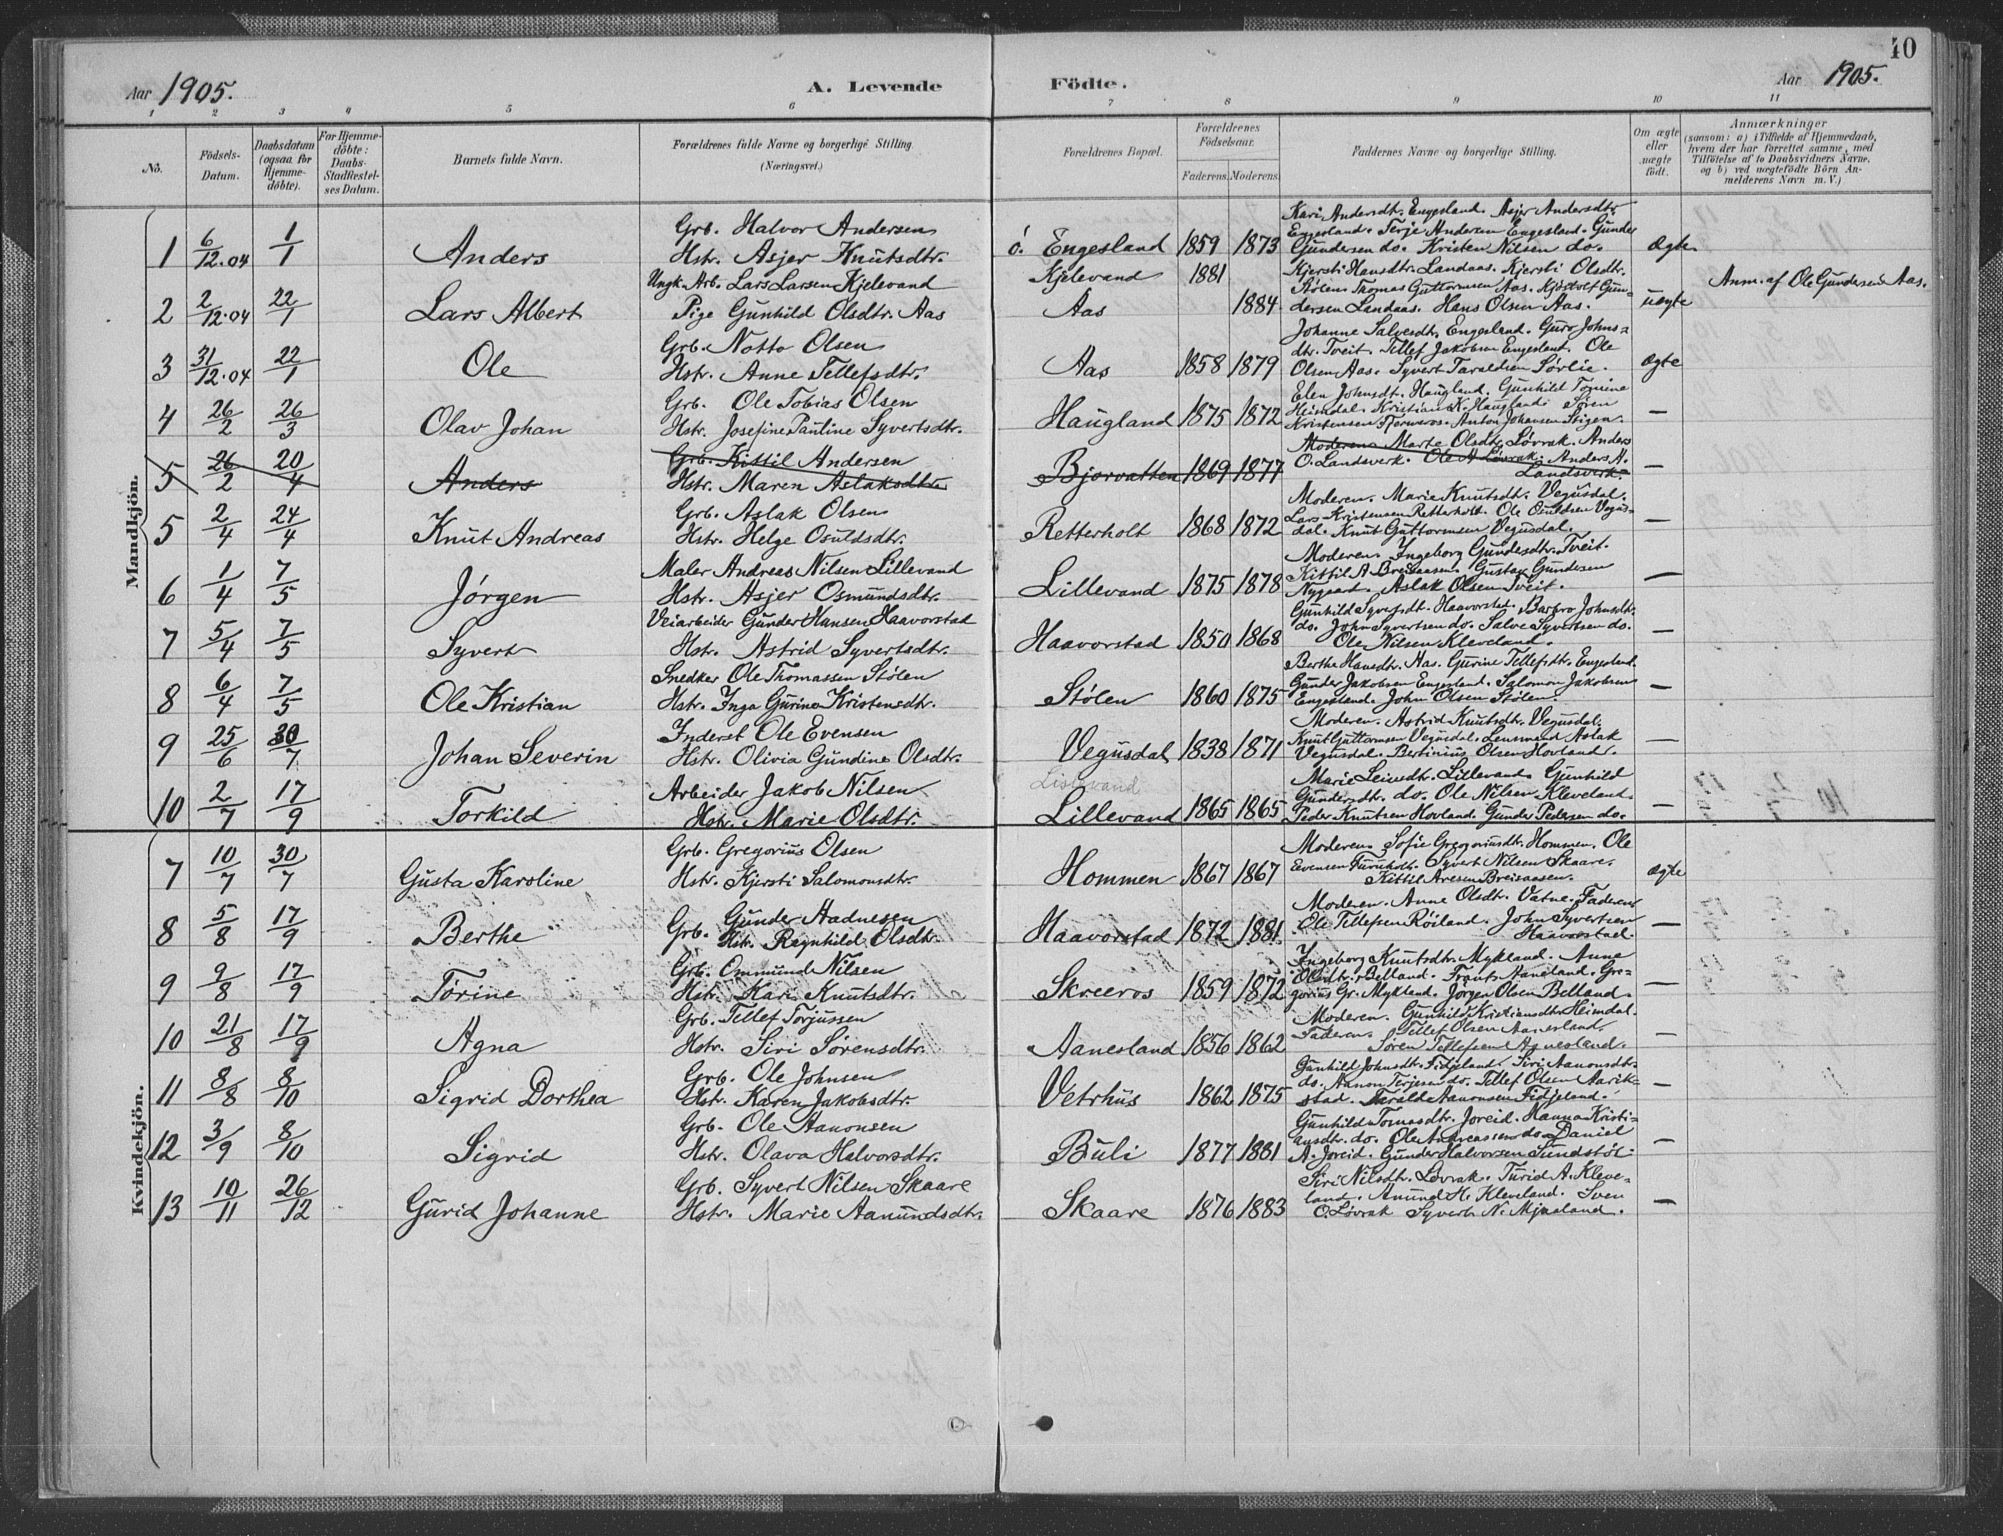 40
Aar 1905. A. Levende Födte. Aar 1905.
1 2 3 4 5 6 7 8 9 10 11
No. Födsels-Datum. Daabsdatum (ogsaa for Hjemme-döbte). For Hjemme-döbte: Daabs-Stadfæstel-ses Datum. Barnets fulde Navn. Forældrenes fulde Navne og borgerlige Stilling. (Næringsvei.) Forældrenes Bopæl. Forældrenes Födselsaar. Faderens. Moderens. Faddernes Navne og borgerlige Stilling. Om ægte eller uægte födt. Anmærkninger (saasom: a) i Tilfælde af Hjemmedaab, hvem der har forrettet samme, med Tilföielse af to Daabsvidners Navne, og b) ved uægtefödte Börn An-melderens Navn m. V.)
Mandkjön.
1 6/12.04 1/1 Anders
Grb. Halvor Andersen
Hstr. Asjer Knutsdtr.
Engesland 1859 1873
Kari Andersdtr. Engesland. Asjer Andersdtr.
Engesland. Terje Andersen Engesland. Gunder
Gundersen do. Kristen Nilsen do.
ægte
2 2/12.04 22/1 Lars Albert
Ungk. Arb. Lars Larsen Kjelevand
Pige Gunhild Olsdtr. Aas
Kjelevand 1881
Aas 1884
Kjersti Hansdtr. Landaas. Kjersti Olsdtr.
Stølen. Thomas Guttormsen Aas. Kjøstolf Gun-
dersen Landaas. Hans Olsen Aas.
uægte
Anm. af Ole Gundersen Aas.
3 31/12.04 22/1 Ole
Grb. Notto Olsen
Hstr. Anne Tellefsdtr.
Aas 1858 1879
Johanne Salvesdtr. Engesland. Guro Johns-
dtr. Tveit. Tellef Jakobsen Engesland. Ole
Olsen Aas. Syvert Taraldsen Sørlie.
ægte
4 26/2 26/3 Olav Johan
Grb. Ole Tobias Olsen
Hstr. Josefine Pauline Syvertsdtr.
Haugland 1875 1872
Elen Johnsdt. Haugland. Gunhild Tomine
Heimdal. Kristian K. Haugland. Søren
Kristensen Fjermeros. Anton Johansen Stigen.
—
5 26/2 20/4 Anders
Grb. Kittil Andersen
Hstr. Maren Aslaksdtr.
Bjorvatten 1869 1877
Moderen. Marte Olsdtr. Løvrak. Anders
O. Landsverk. Ole A. Løvrak. Anders A.
Landsverk.
—
5 2/4 24/4 Knut Andreas
Grb. Aslak Olsen
Hstr. Helge Osuldsdtr.
Retterholt 1868 1872
Moderen. Marie Knutsdtr. Vegusdal.
Lars Kristensen Retterholt. Ole Osuldsen Vegus-
dal. Knut Guttormsen Vegusdal.
—
6 1/4 7/5 Jørgen
Maler Andreas Nilsen Lillevand
Hstr. Asjer Osmundsdtr.
Lillevand 1875 1878
Moderen. Ingeborg Gundersdtr. Tveit.
Kittil A. Breisaasen. Gustav Gundersen
Nygaard. Aslak Olsen Tveit.
—
7 5/4 7/5 Syvert
Veiarbeider Gunder Hansen Haavorstad
Hstr. Astrid Syvertsdtr.
Haavorstad 1850 1868
Gunhild Syvertsdt. Haavorstad. Barbro Johnsdtr.
do. John Syvertsen do. Salve Syvertsen do.
Ole Nilsen Kleveland.
—
8 6/4 7/5 Ole Kristian
Snedker Ole Thomassen Stølen
Hstr. Inga Gurine Kristensdtr.
Stølen 1860 1875
Berthe Hansdtr. Aas. Gurine Tellefsdtr. Engesland.
Gunder Jakobsen Engesland. Salomon Jakobsen
Engesland. John Olsen Stølen.
—
9 25/6 30/7 Johan Severin
Inderst Ole Evensen
Hstr. Olivia Gundine Olsdtr.
Vegusdal 1838 1871
Moderen. Astrid Knutsdtr. Vegusdal.
Knut Guttormsen Vegusdal. Lensmand Aslak
Vegusdal. Bertinius Olsen Hovland.
—
10 2/7 17/9 Torkild
Arbeider Jakob Nilsen
Hstr. Marie Olsdtr.
Lislevand
Lillevand 1865 1865
Marie Leivsdtr. Lillevand. Gunhild
Gundersdtr. do. Ole Nilsen Kleveland.
Peder Knutsen Hovland. Gunder Pedersen do.
—
Kvindekjön.
7 10/7 30/7 Gusta Karoline
Grb. Gregorius Olsen
Hstr. Kjersti Salomonsdtr.
Hommen 1867 1867
Moderen. Sofie Gregoriusdtr. Hommen. Ole
Evensen Furuholt. Syvert Nilsen Skaare.
Kittil Aresen Breisaasen.
ægte
8 5/8 17/9 Berthe
Grb. Gunder Aadnesen
Hstr. Ragnhild Olsdtr.
Haavorstad 1872 1881
Moderen. Anne Olsdtr. Vatne. Faderen
Ole Tellefsen Røiland. John Syvertsen
Haavorstad.
—
9 9/8 17/9 Tørine
Grb. Ommund Nilsen
Hstr. Kari Knutsdtr.
Skreeros 1859 1872
Ingeborg Knutsdtr. Mykland. Anne
Olsdtr. Belland. Frants Aaneland. Gre-
gorius Gr. Mykland. Jørgen Olsen Belland.
—
10 21/8 17/9 Agna
Grb. Tellef Torjussen
Hstr. Siri Sørensdtr.
Aanesland 1856 1862
Moderen. Gunhild Kristiansdtr. Heimdal.
Faderen. Tellef Olsen Aanesland.
Søren Tellefsen Aanesland.
—
11 8/8 8/10 Sigrid Dorthea
Grb. Ole Johnsen
Hstr. Karen Jakobsdtr.
Vetrhus 1862 1875
Gunhild Johnsdtr. Fidjeland. Siri Aanonsdtr.
do. Aanon Terjesen do. Tellef Olsen Aarik-
stad. Tarald Aanonsen Fidjeland.
—
12 3/9 8/10 Sigrid
Grb. Ole Aanonsen
Hstr. Olava Halvorsdtr.
Buli 1877 1881
Gunhild Tomasdtr. Joreid. Hanna Kristi-
ansdtr. do. Ole Andreassen do. Daniel
A. Joreid. Gunder Halvorsen Sundstøl.
—
13 10/11 26/12 Gurid Johanne
Grb. Syvert Nilsen Skaare
Hstr. Marie Aanundsdtr.
Skaare 1876 1883
Siri Nilsdtr. Løvrak. Turid A. Kleve-
land. Anund H. Kleveland. Sven
O. Løvrak Syvert N. Mjaaland.
—